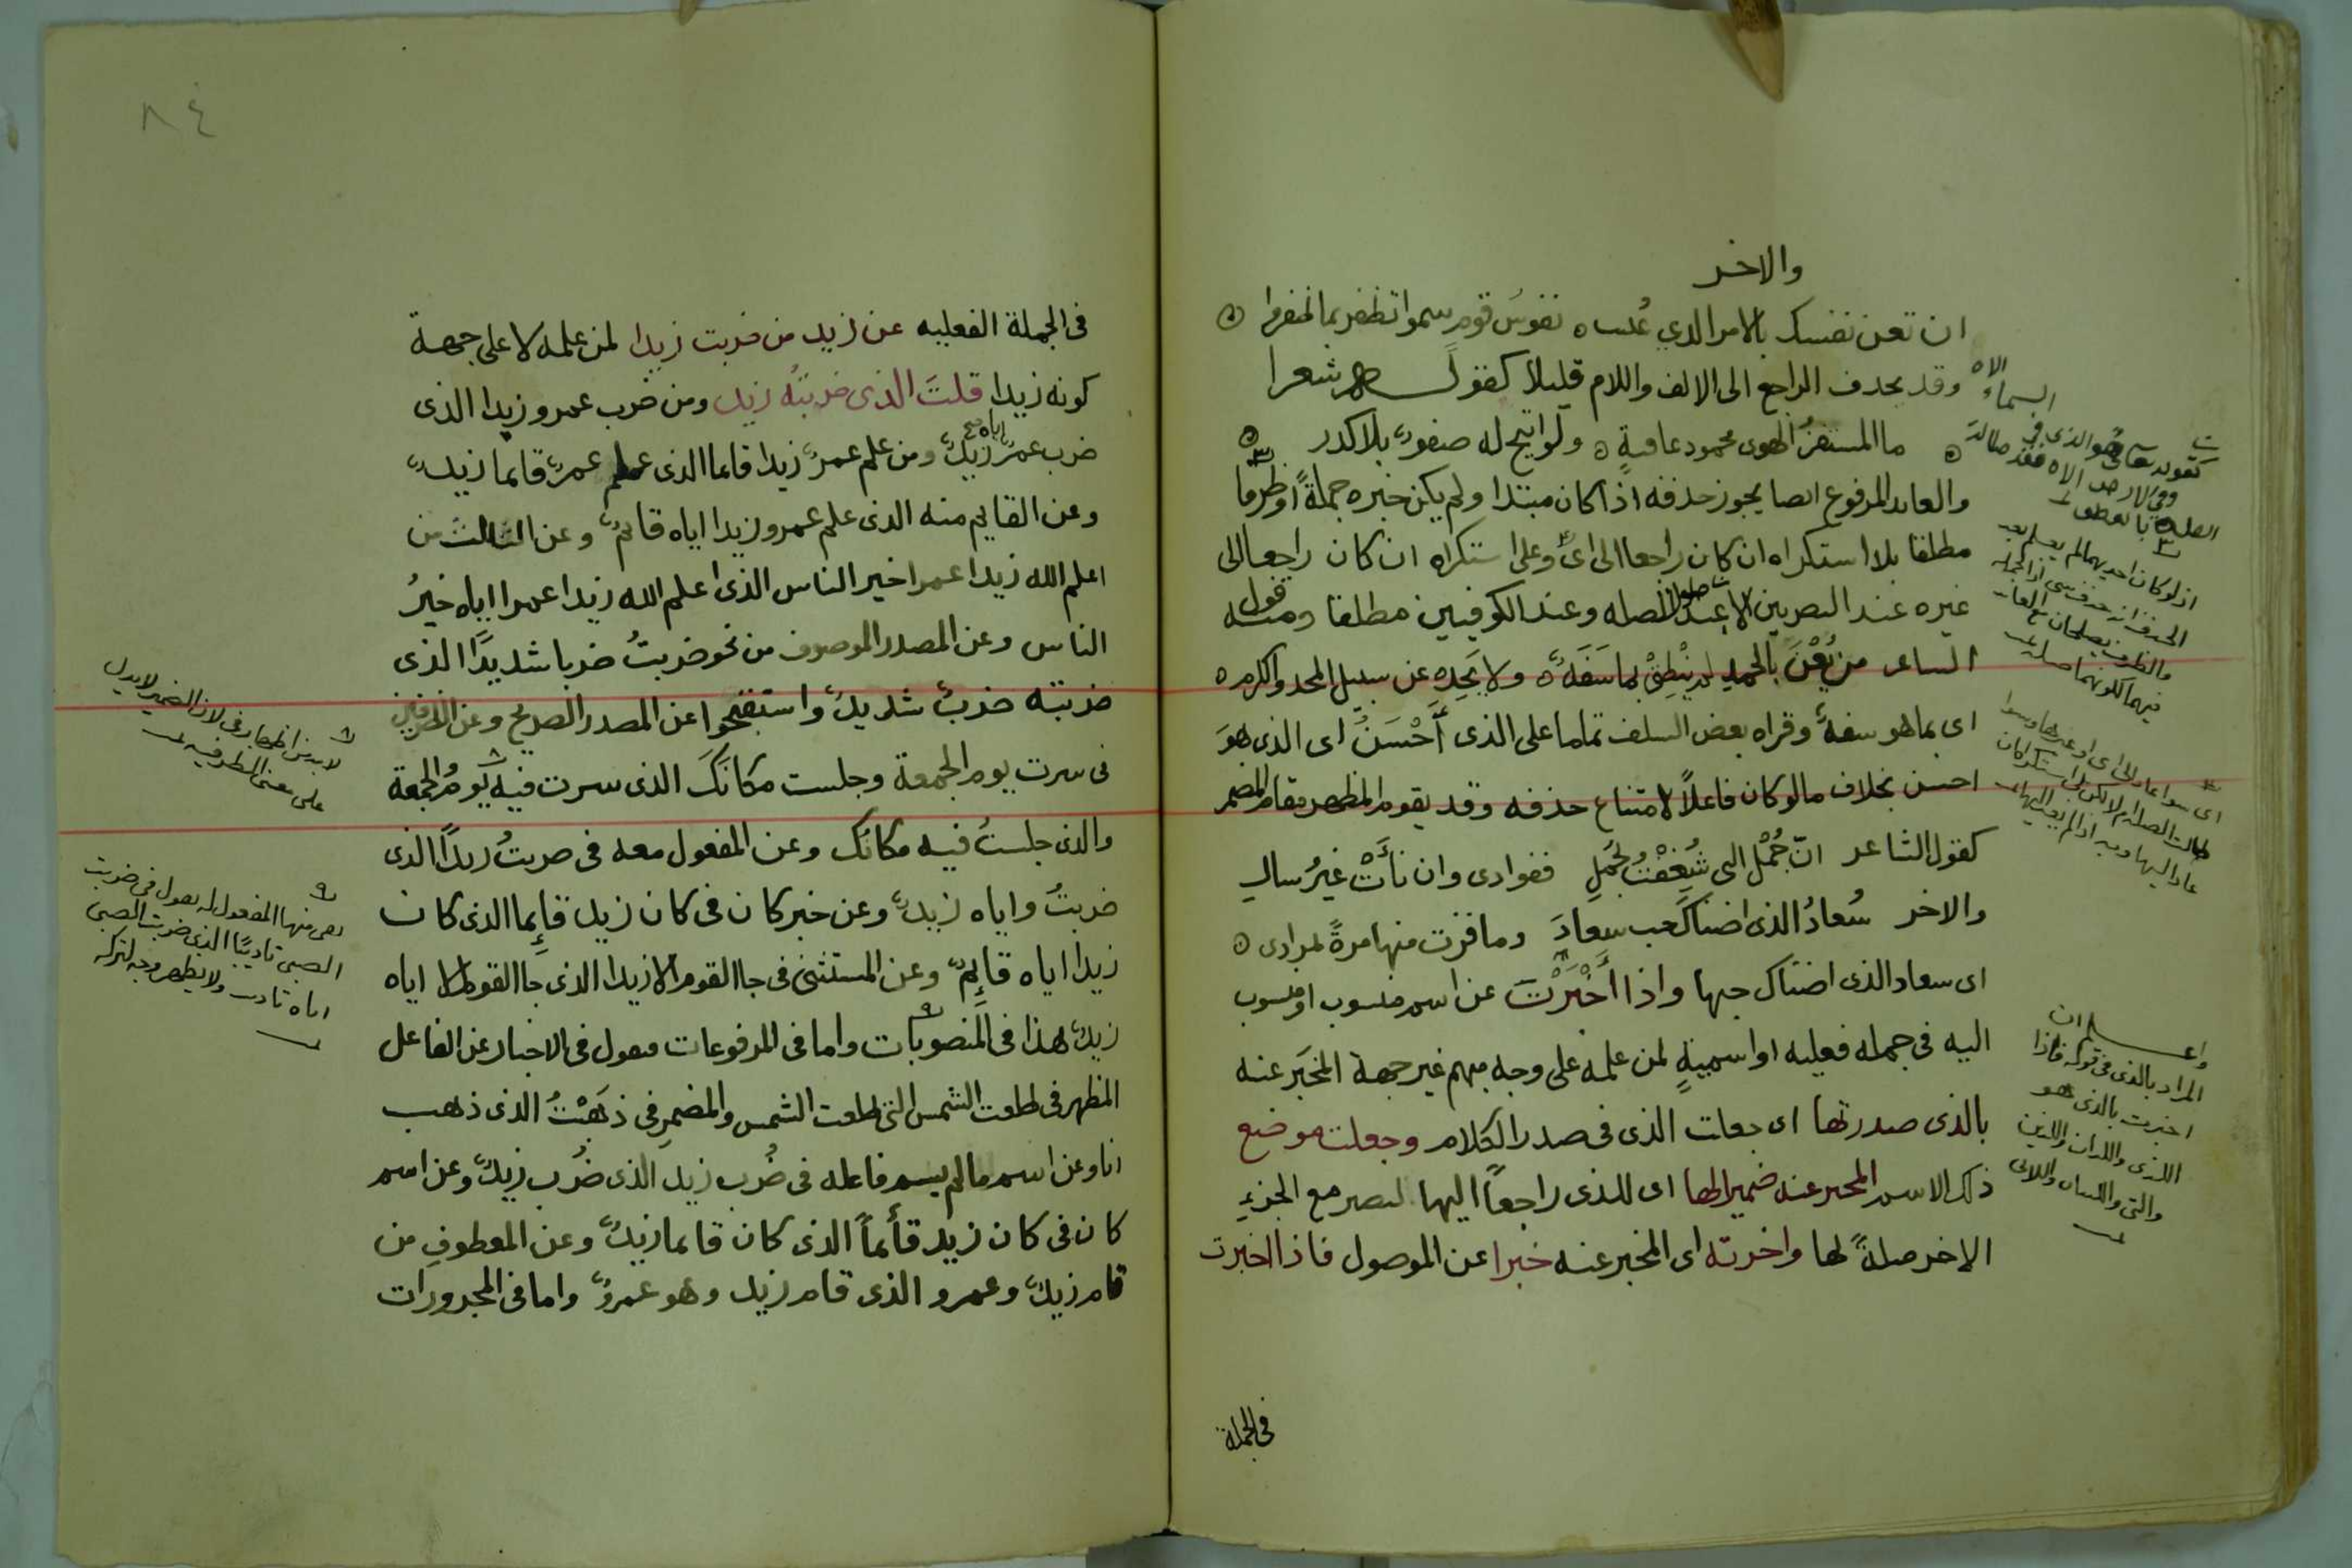 والاخر
ان تعن نفسك بالامر الذي عُنيت ه نفوسُ قوم سموا تظفر بما ظفروا ه
وقد يحذف الراجع الى الالف واللام قليلاً كقولهم شعرا
ما المستفزُ الهوى محمود عاقبةٍ ه ولو اتيح له صفوٌ بلا كدر ه
والعايد المرفوع ايضا يجوز حذفه اذا كان مبتدا ولم يكن خبره جملةً او ظرفا
مطلقا بلا استكراه ان كان راجعا الى اىٍّ وعلى استكراه ان كان راجعا الى
غيره عند البصريين الا عند طول الصله وعند الكوفيين مطلقا ومنه قول
الشاعر من يُعْنَ بالحمدِ لم ينْطِقْ بما سَفَهٌ ه ولا يَحِدْ عن سبيل المجد والكرم ه
اى بما هو سفهٌ وقراه بعض السلف تماما على الذى أَحْسَنُ اى الذى هوَ
احسن بخلاف ما لو كان فاعلاً لامتناع حذفه وقد يقوم المظهر مقام المضمر
كقول الشاعر انّ جُمْل التى شُغِفْتُ بجُمْلِ ففوادى وان نَأَتْ غيرُ سالِ
والاخر سُعادُ الذى اضناكَ حب سعادَ وما فزت منها مرةً بمرادى ه
اى سعاد الذى اضناك حبها واذا أَخْبَرْتَ عن اسم منسوب او منسوب
اليه فى جمله فعليه او اسميةٍ لمن علمه على وجه مبهم غير جهة المخبَر عنه
بالذى صدرتها اى جعلت الذى فى صدر الكلام وجعلت موضع
ذلك الاسم المخبر عنه ضميرا لها اى للذى راجعاً اليها ليصير مع الجزءِ
الاخر صلةً لها واخرته اى المخبر عنه خبرا عن الموصول فاذا اخبرت
فى الجملة
كقوله تعالى وهو الذى فى
السماء الاه
وفى الارض الاه فقد طالت
الصلة بالعطف
واعلم ان
المراد بالذى فى قوله فاذا
اخبرت بالذى هو
الذى واللذان والذين
والتى واللتان واللاتى
٨٤
فى الجملة الفعليه عن زيد من ضربت زيدا لمن علمه لا على جهة
كونه زيدا قلتَ الذى ضربتُه زيد ومن ضرب عمرو زيدا الذى
ضرب عمرٌو اياه زيدٌ ومن علم عمرٌو زيدا قايما الذى علم عمرٌو قايما زيدٌ
وعن القايم منه الذى علم عمرو زيدا اياه قايمٌ وعن الثالث من
اعلم الله زيدا عمرا خير الناس الذى اعلم الله زيدا عمرا اياه خيرُ
الناس وعن المصدر الموصوف من نحو ضربتُ ضربا شديدًا الذى
ضربته ضربٌ شديدٌ واستقبحوا عن المصدر الصريح وعن الظرفين
فى سرت يوم الجمعة وجلست مكانَكَ الذى سرت فيه يومُ الجمعة
والذى جلستُ فيه مكانُك وعن المفعول معه فى ضربتُ وزيداً الذى
ضربتُ واياه زيدٌ وعن خبر كان فى كان زيد قايِما الذى كان
زيدا اياه قايِمٌ وعن المستثنى فى جا القوم الا زيدا الذى جا القوم الا اياه
زيدٌ هذا فى المنصوبات واما فى المرفوعات فيقول فى الاخبار عن الفاعل
المظهر فى طلعت الشمس التى طلعت الشمس والمضمرِ فى ذهَبْتُ الذى ذهب
انا وعن اسم ما لم يسم فاعله فى ضُرب زيد الذى ضُرب زيدٌ وعن اسم
كان فى كان زيد قأئماً الذى كان قايما زيدٌ وعن المعطوفِ من
قام زيدٌ وعمرو الذى قام زيد وهو عمرٌو واما فى المجرورات
لا بد من اظهار فى لان الضمير لا يدل
على معنى الظرفيه
بقى منها المفعول له يقول فى ضربت
الصبى تاديبًا الذى ضربت الصبى
اياه تاديب ولا يظهر وجه لتركه